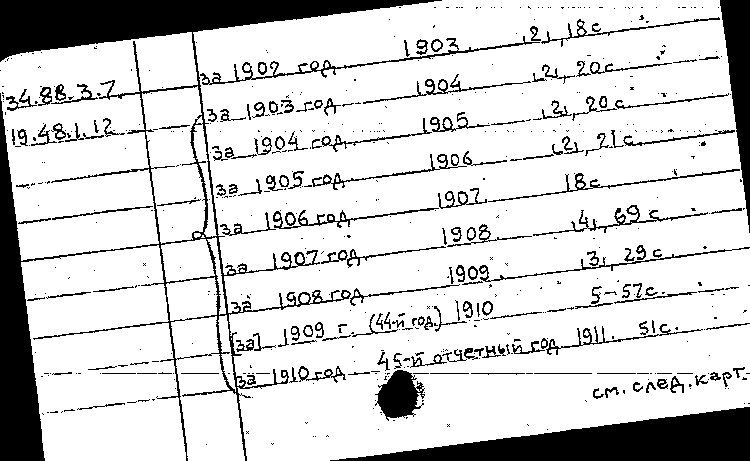 за 1902 год. 1903. 2, 18 с.
34.8В.3.7. за 1903 год 1904. 2, 20 с.
19.48.1.12 за 1904 год. 1905. 2, 20 с.
за 1905 год. 1906 2, 21 с.
за 1906 год 1907. 18 с.
за 1907 год. 1908. 4, 69 с.
за 1908 год 1909. 3, 29 с.
[за] 1909 г. (44-й год) 1910 5-57 с.
за 1910 год 45-й отчетный год 1911. 51 с.
см. след. карт.